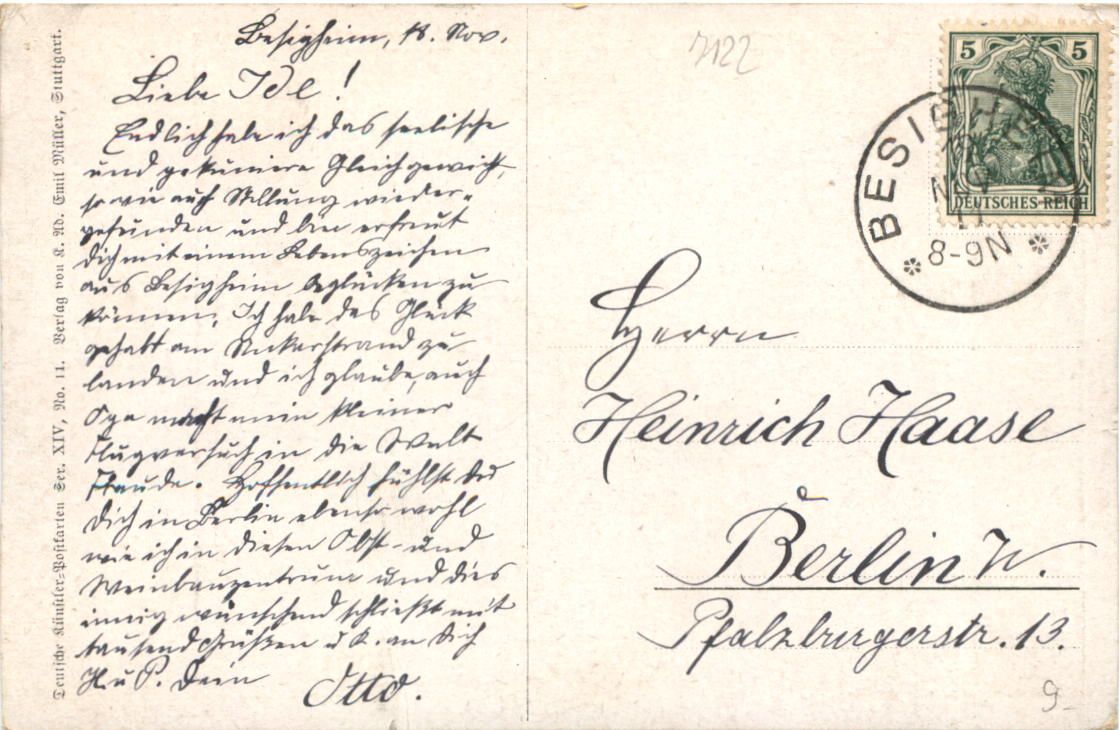 Besigheim, 18. Nov.
Liebe Ide!
Endlich habe ich das seelische
und pekuniäre Gleichgewicht,
sowie auch Stellung wieder-
gefunden und bin erfreut
Dich mit einem Lebenszeichen
aus Besigheim beglücken zu
können. Ich habe das Glück
gehabt am Neckarstrand zu
landen und ich glaube, auch
macht mein kleiner
Flugversuch in die Welt
Freude. Hoffentlich fühlst du
Dich in Berlin ebenso wohl
wie ich in diesem Obst- und
Weinbauzentrum und dies
innig wünschend schließt mit
tausend Grüßen u. K. an Dich
H. u. P. Dein
Otto.
Deutsche Künstler-Postkarten Ser. XIV, No. 11. Verlag von K. Ad. Emil Müller, Stuttgart.
7122
5 5
DEUTSCHES REICH
BESIGHEIM
NOV
11
8-9N
Herrn
Heinrich Haase
Berlin W.
Pfalzburgerstr. 13.
9-